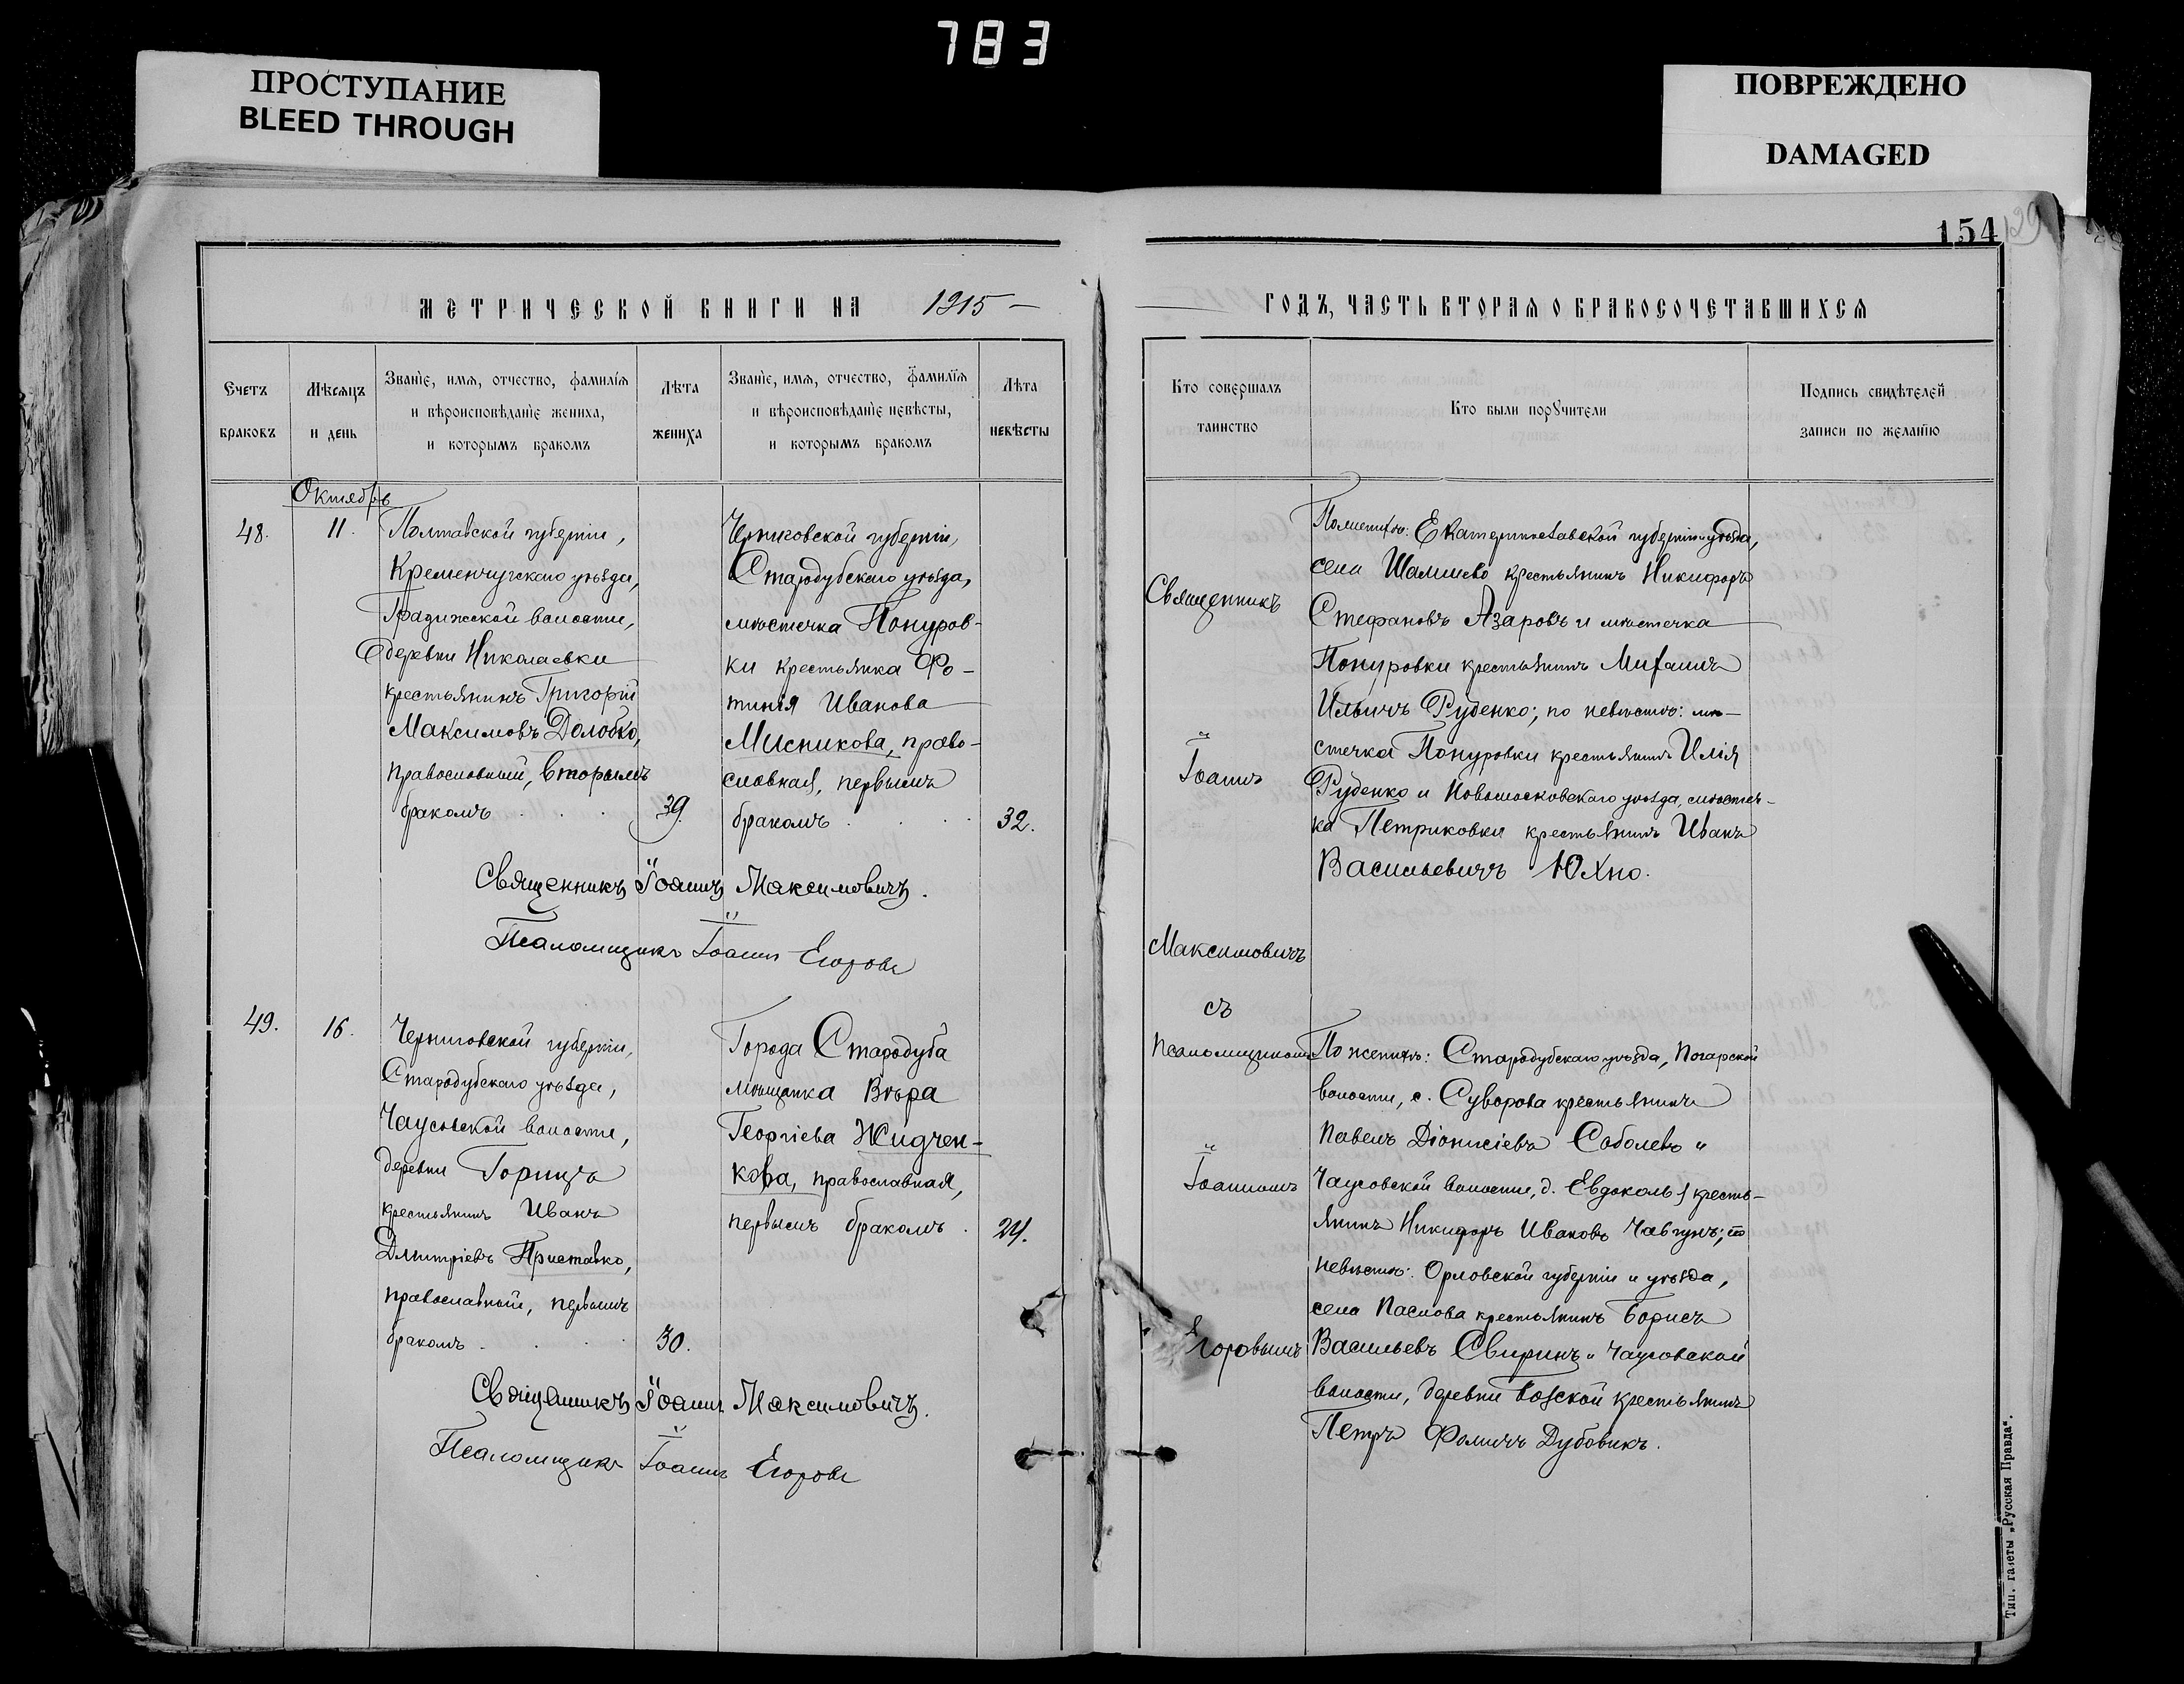 783
ПРОСТУПАНИЕ
BLEED THROUGH
ПОВРЕЖДЕНО
DAMAGED
154
129
МЕТРИЧЕСКОЙ КНИГИ НА 1915 —
Счетъ
браковъ
Мѣсяцъ
и день
Званіе, имя, отчество, фамилія
и вѣроисповѣданіе жениха,
и которымъ бракомъ
Лѣта
жениха
Званіе, имя, отчество, фамилія
и вѣроисповѣданіе невѣсты,
и которымъ бракомъ
Лѣта
невѣсты
Октябрь
48.
11.
Полтавской губерніи,
Кременчугскаго уѣзда,
Градижской волости,
деревни Николаевки
крестьянинъ Григорій
Максимовъ Долобко,
православный, вторымъ
бракомъ . . .
39.
Черниговской губерніи,
Стародубскаго уѣзда,
мѣстечка Понуров-
ки крестьянка Фо-
тинія Иванова
Мисникова, право-
славная, первымъ
бракомъ . . .
32.
Священникъ Іоаннъ Максимовичъ.
Псаломщикъ Іоаннъ Егоровъ
49.
16.
Черниговской губерніи,
Стародубскаго уѣзда,
Чаусовской волости,
деревни Горицъ
крестьянинъ Иванъ
Дмитріевъ Приставко,
православный, первымъ
бракомъ . . .
30.
Города Стародуба
мѣщанка Вѣра
Георгіева Жидчен-
кова, православная,
первымъ бракомъ .
24.
Священникъ Іоаннъ Максимовичъ.
Псаломщикъ Іоаннъ Егоровъ
ГОДЪ, ЧАСТЬ ВТОРАЯ О БРАКОСОЧЕТАВШИХСЯ
Кто совершалъ
таинство
Кто были поручители
Подпись свидѣтелей
записи по желанію
Священникъ
Іоаннъ
Максимовичъ
съ
Псаломщикомъ
Іоанномъ
Егоровымъ
По женихѣ: Екатеринославской губерніи и уѣзда,
села крестьянинъ Никифоръ
Стефановъ Азаровъ и мѣстечка
Понуровки крестьянинъ Михаилъ
Ильичъ Руденко; по невѣстѣ: мѣ-
стечка Понуровки крестьянинъ Илія
Руденко и Новомосковскаго уѣзда, мѣстеч-
ка Петриковки крестьянинъ Иванъ
Васильевичъ Юхно.
По женихѣ: Стародубскаго уѣзда, Погарской
волости, с. Суворова крестьянинъ
Павелъ Діонисіевъ Соболевъ и
Чаусовской волости, д. Евдоколь крестья-
янинъ Никифоръ Ивановъ Чавгунъ; по
невѣстѣ: Орловской губерніи и уѣзда,
села Паслова крестьянинъ Борисъ
Васильевъ Свиринъ и Чаусовской
волости, деревни крестьянинъ
Петръ Ѳомичъ Дубовикъ.
Тип. газеты „Русская Правда“.